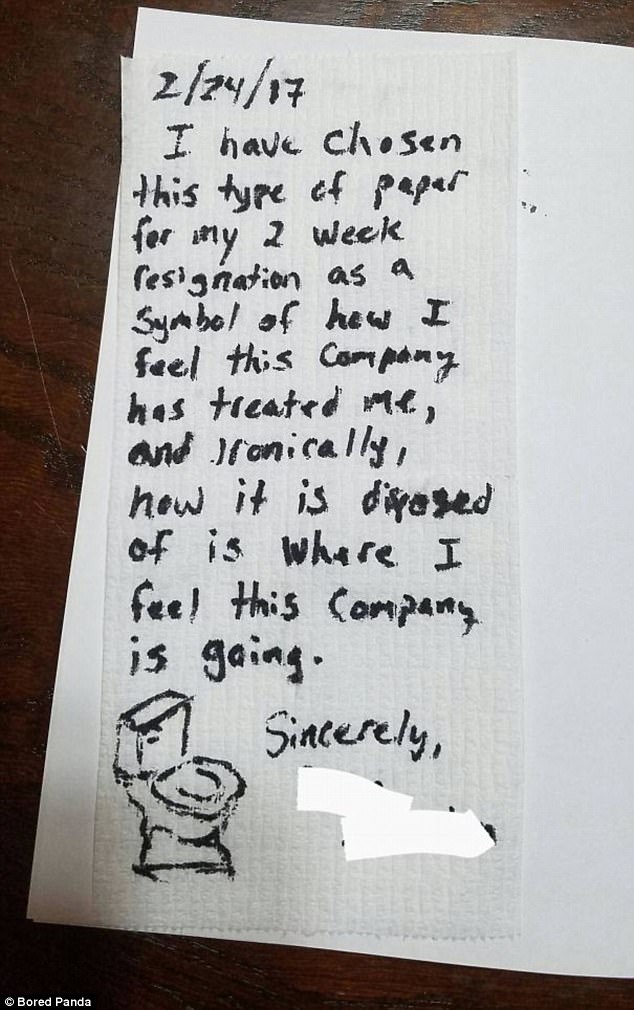 2/24/17
I have chosen
this type of paper
for my 2 week
resignation as a
symbol of how I
feel this Company
has treated me,
and ironically,
how it is disposed
of is where I
feel this Company
is going.
Sincerely,
© Bored Panda